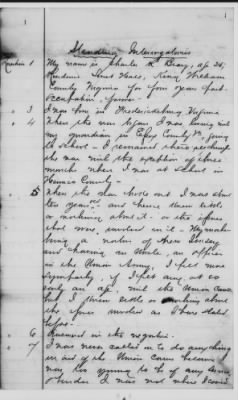 1
Standing Interogatories
Question 1 My name is Charles R. Bray, age 25;
Residence Hall, King William
County Virginia for four years past.
Occupation, farmer.
" 3 I was born in Fredericksburg Virginia
" 4 When the war began I was living with
my guardian in Essex County Va, going
to School - I remained there through
the war with the exception of three
months when I was at School in
Hanover County -
5 When the war broke out I was about
ten years old and knew little
or nothing about it - or the issues
that were involved in it - My mother
being a native of New Jersey
and having an Uncle, an officer
in the Union Army I felt more
sympathy, if I felt any, at so
early an age, with the Union Cause
but, I knew little or nothing about
the issues involved as I have stated
before.
" 6 Answered in the negative.
" 7 I was never called on to do anything
in aid of the Union cause because I
was too young to be of any service
I was not where I could